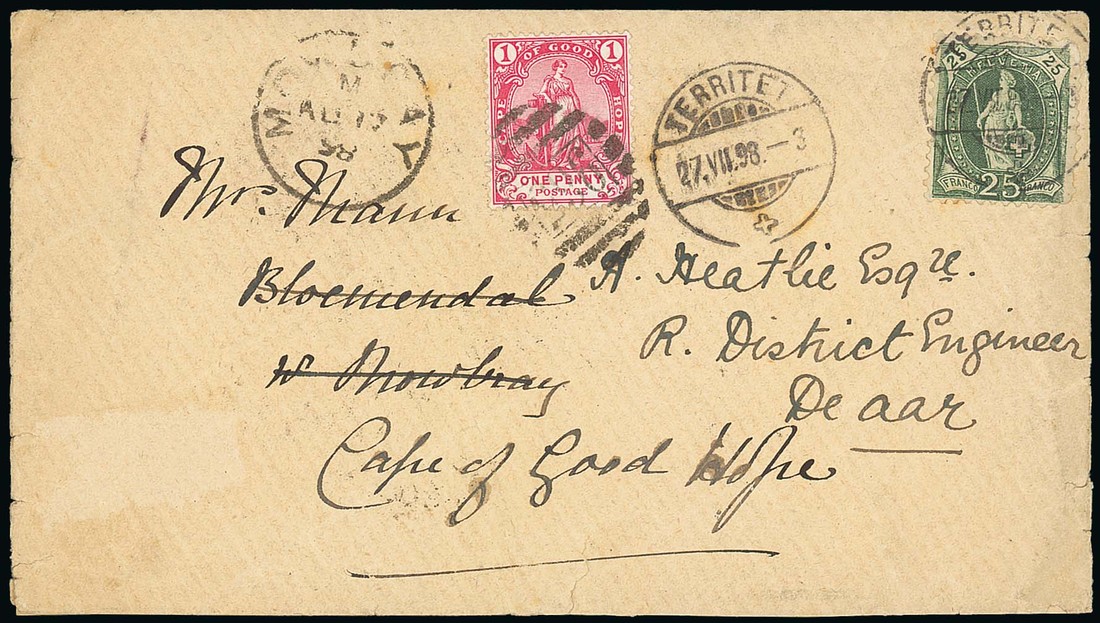 MOWBRAY
M
AU 19
98
1 OF GOOD 1
PE HOPE
ONE PENNY
POSTAGE
TERRITET
27.VII.98.-3
TERRITET
25 HELVETIA 25
FRANCO 25 FRANCO
Mrs. Mann
Bloemendal
Mowbray
A. Heatlie Esqre.
R. District Engineer
De aar
Cape of Good Hope